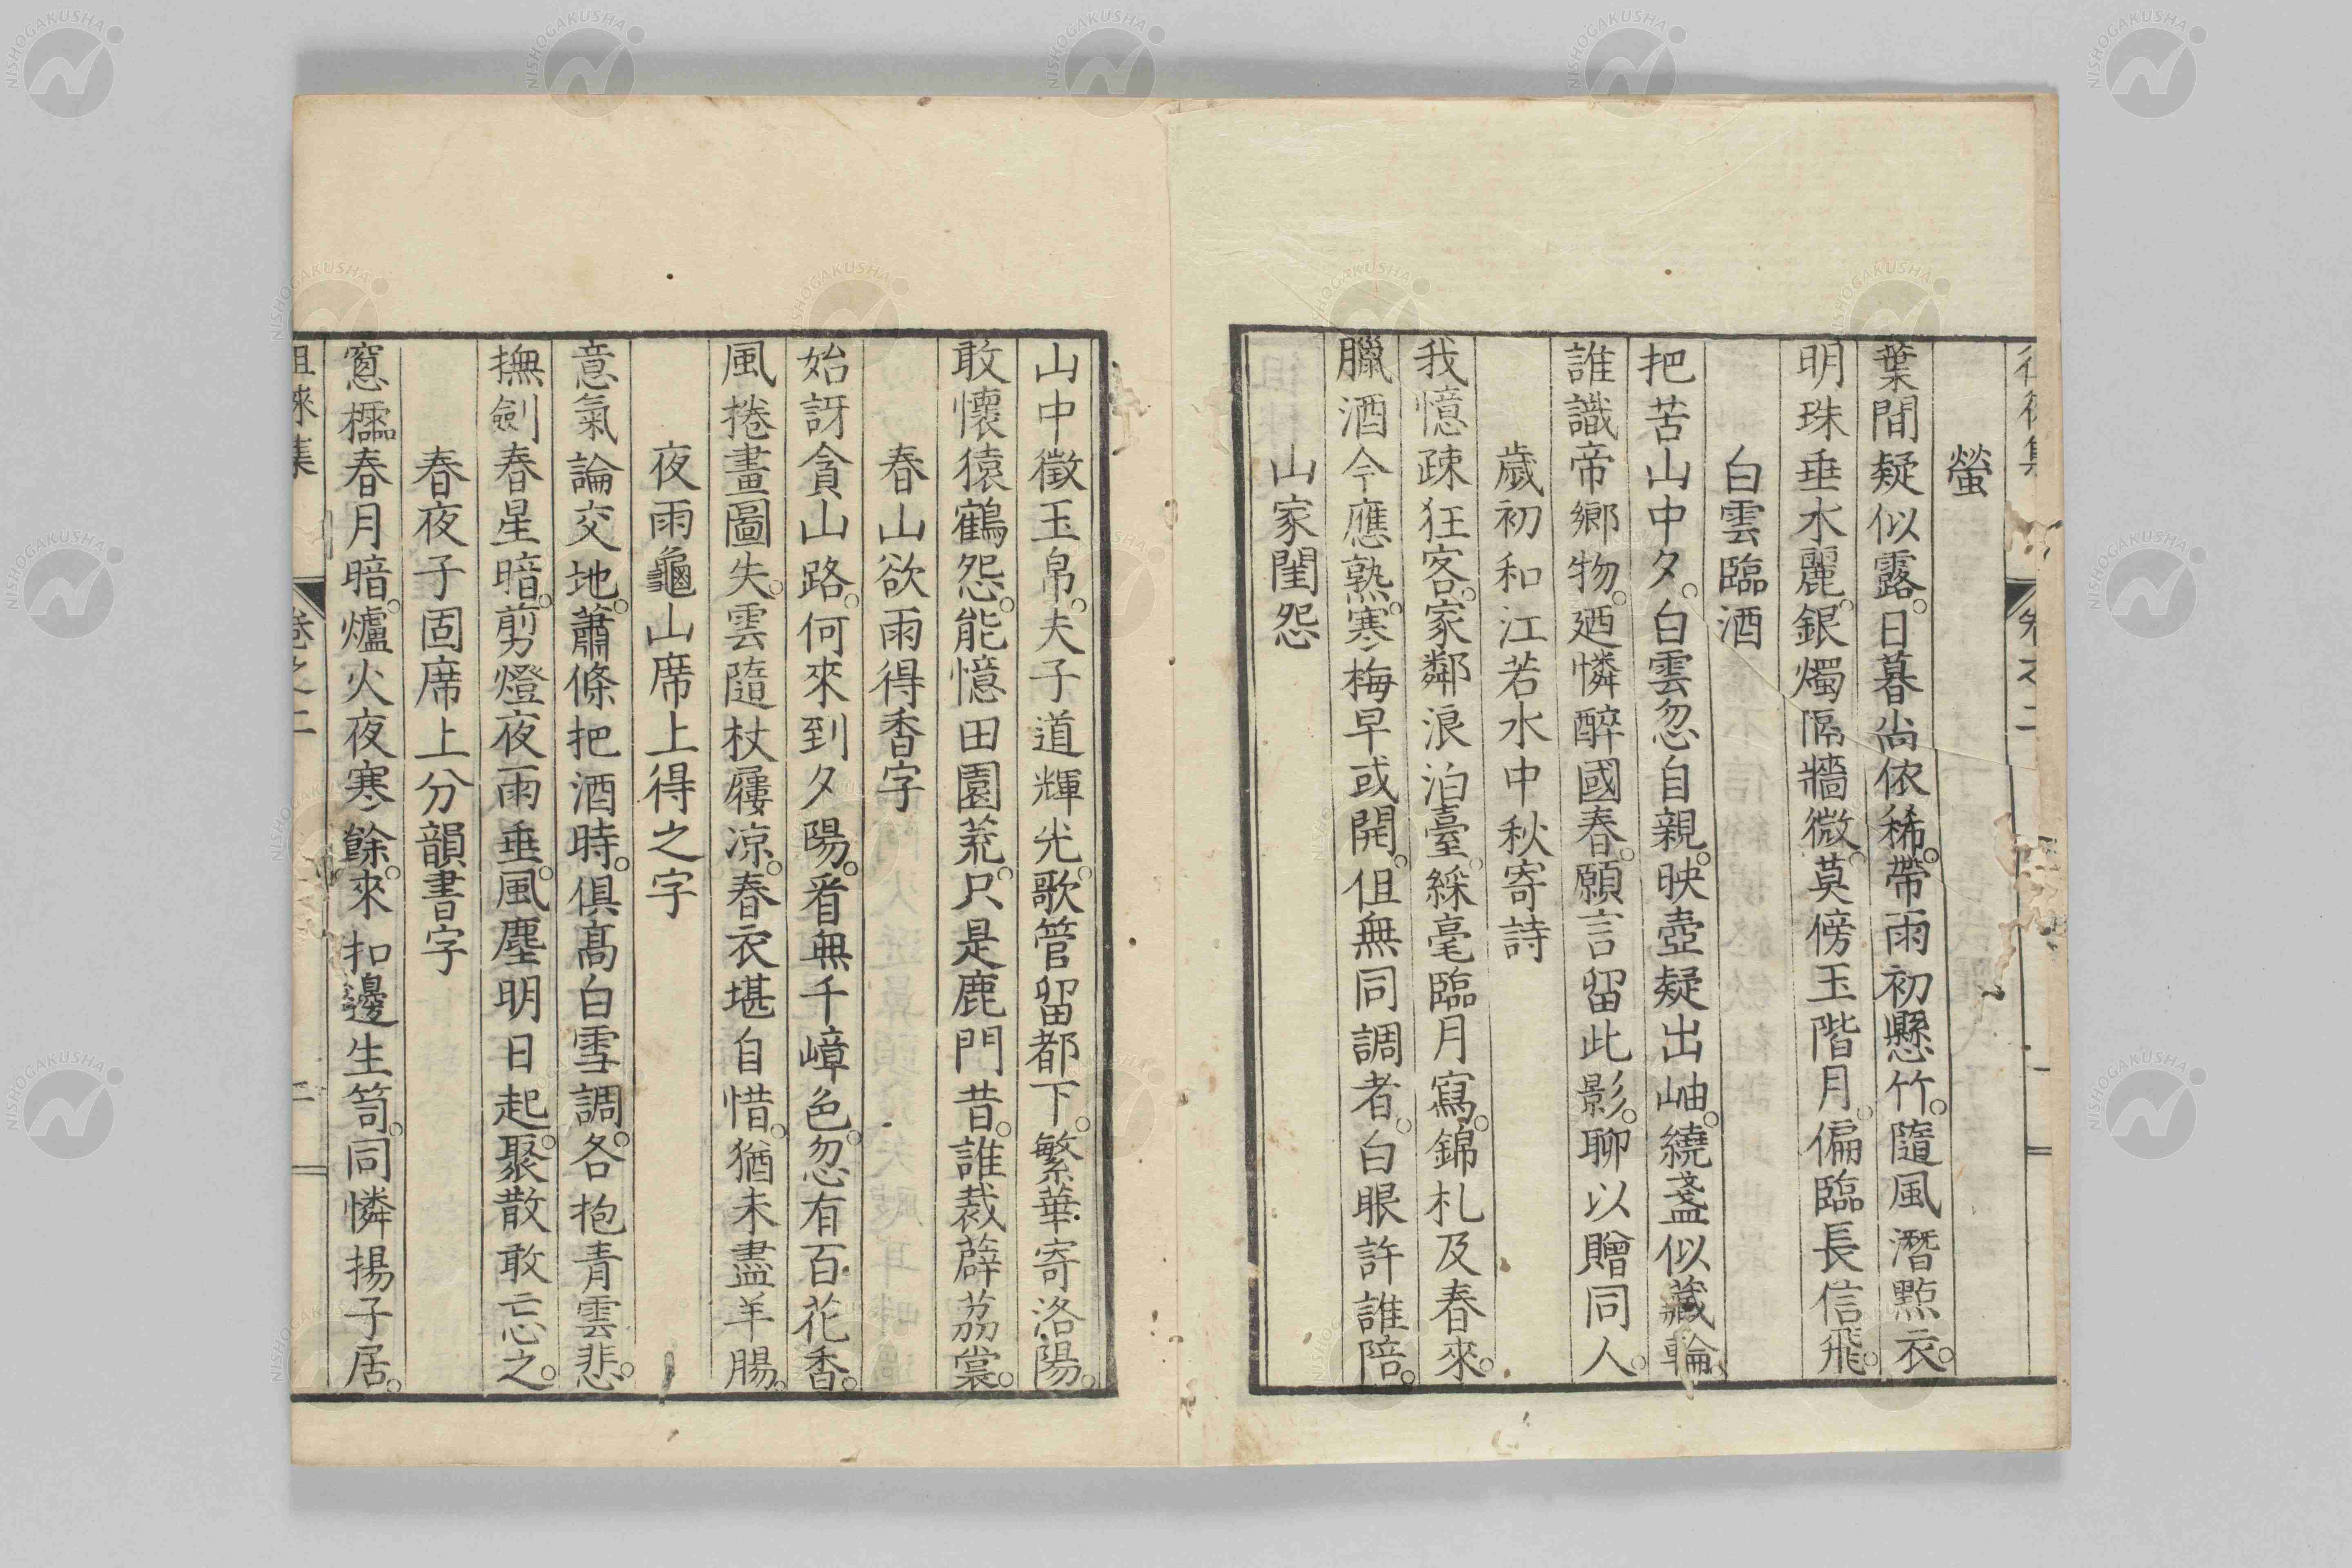 螢
葉間疑似露。日暮尚依稀。帶雨初懸竹。隨風潛點衣。
明珠垂水麗。銀燭隔牆微。莫傍玉階月。偏臨長信飛。
白雲臨酒
把苦山中夕。白雲忽自親。映壺疑出岫。繞盞似藏輪。
誰識帝鄉物。廼憐醉國春。願言留此影。聊以贈同人。
歲初和江若水中秋寄詩
我憶疎狂客。家鄰浪泊臺。綵毫臨月寫。錦札及春來。
臘酒今應熟。寒梅早或開。但無同調者。白眼許誰陪。
山家閨怨
山中徵玉帛。夫子道輝光。歌管留都下。繁華寄洛陽。
敢懷猿鶴怨。能憶田園荒。只是鹿門昔。誰裁薜荔裳。
春山欲雨得香字
始訝貪山路。何來到夕陽。看無千嶂色。忽有百花香。
風捲畫圖失。雲隨杖屨凉。春衣堪自惜。猶未盡羊腸。
夜雨龜山席上得之字
意氣論交地。蕭條把酒時。俱高白雪調。各抱青雲悲。
撫劍春星暗。剪燈夜雨垂。風塵明日起。聚散敢忘之。
春夜子固席上分韻書字
窻櫺春月暗。爐火夜寒餘。來扣邊生笥。同憐揚子居。
徂徠集 卷之二 二